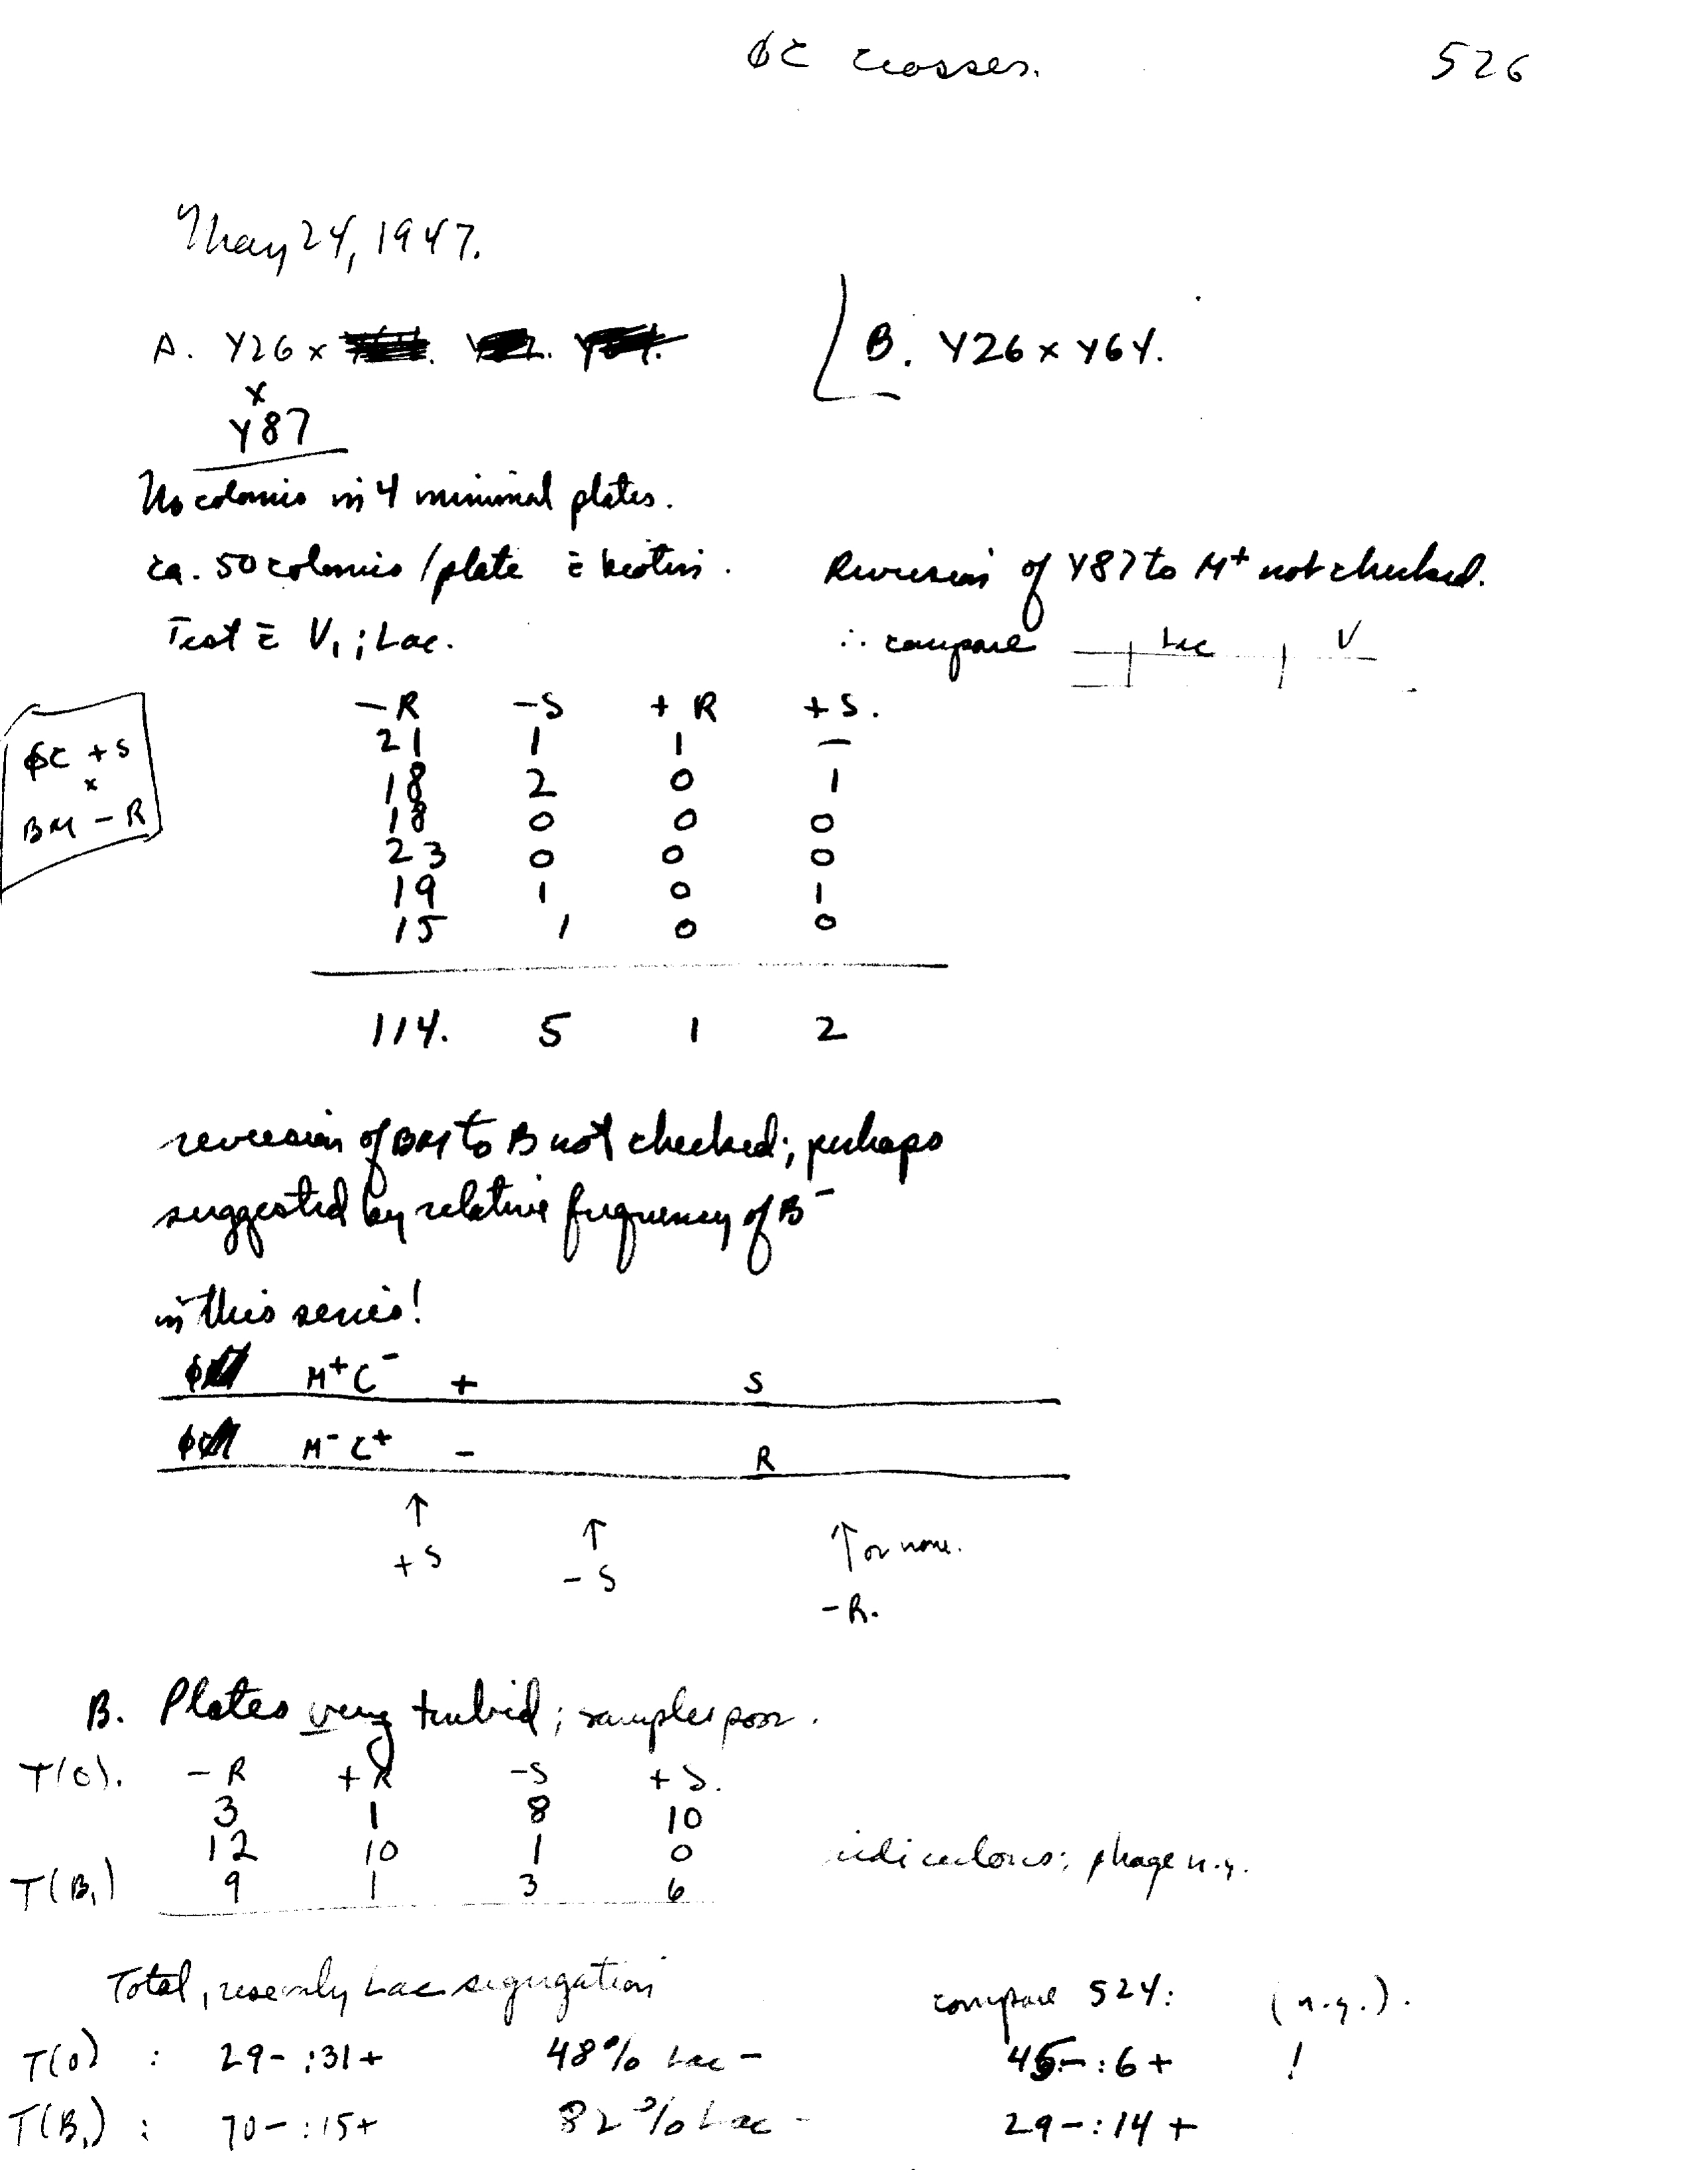 φC crosses. 526
May 24, 1947.
A. Y26 x
x
Y87
B. Y26 x Y64.
No colonies in 4 minimal plates.
ca. 50 colonies / plate c̄ biotin. Reversion of Y87 to M+ not checked.
Test c̄ V₁; Lac. ∴ compare Lac V
-R -S +R +S.
21 1 1 —
18 2 0 1
18 0 0 0
23 0 0 0
19 1 0 1
15 1 0 0
114. 5 1 2
φC +S
x
BM -R
reversion of BM to B not checked; perhaps
suggested by relative frequency of B⁻
in this series!
M⁺C⁻ + S
M⁻C⁺ - R
↑ ↑ ↑ or none.
+S -S
-R.
B. Plates very turbid; samples poor.
T(0). -R +R -S +S.
3 1 8 10
12 10 1 0 ridiculous; phage n.g.
T(B₁) 9 1 3 6
Total, Lac segregation compare 524: (n.g.).
T(0) : 29- :31+ 48% Lac - 45- :6+ !
T(B₁) : 70- :15+ 82% Lac - 29- :14+